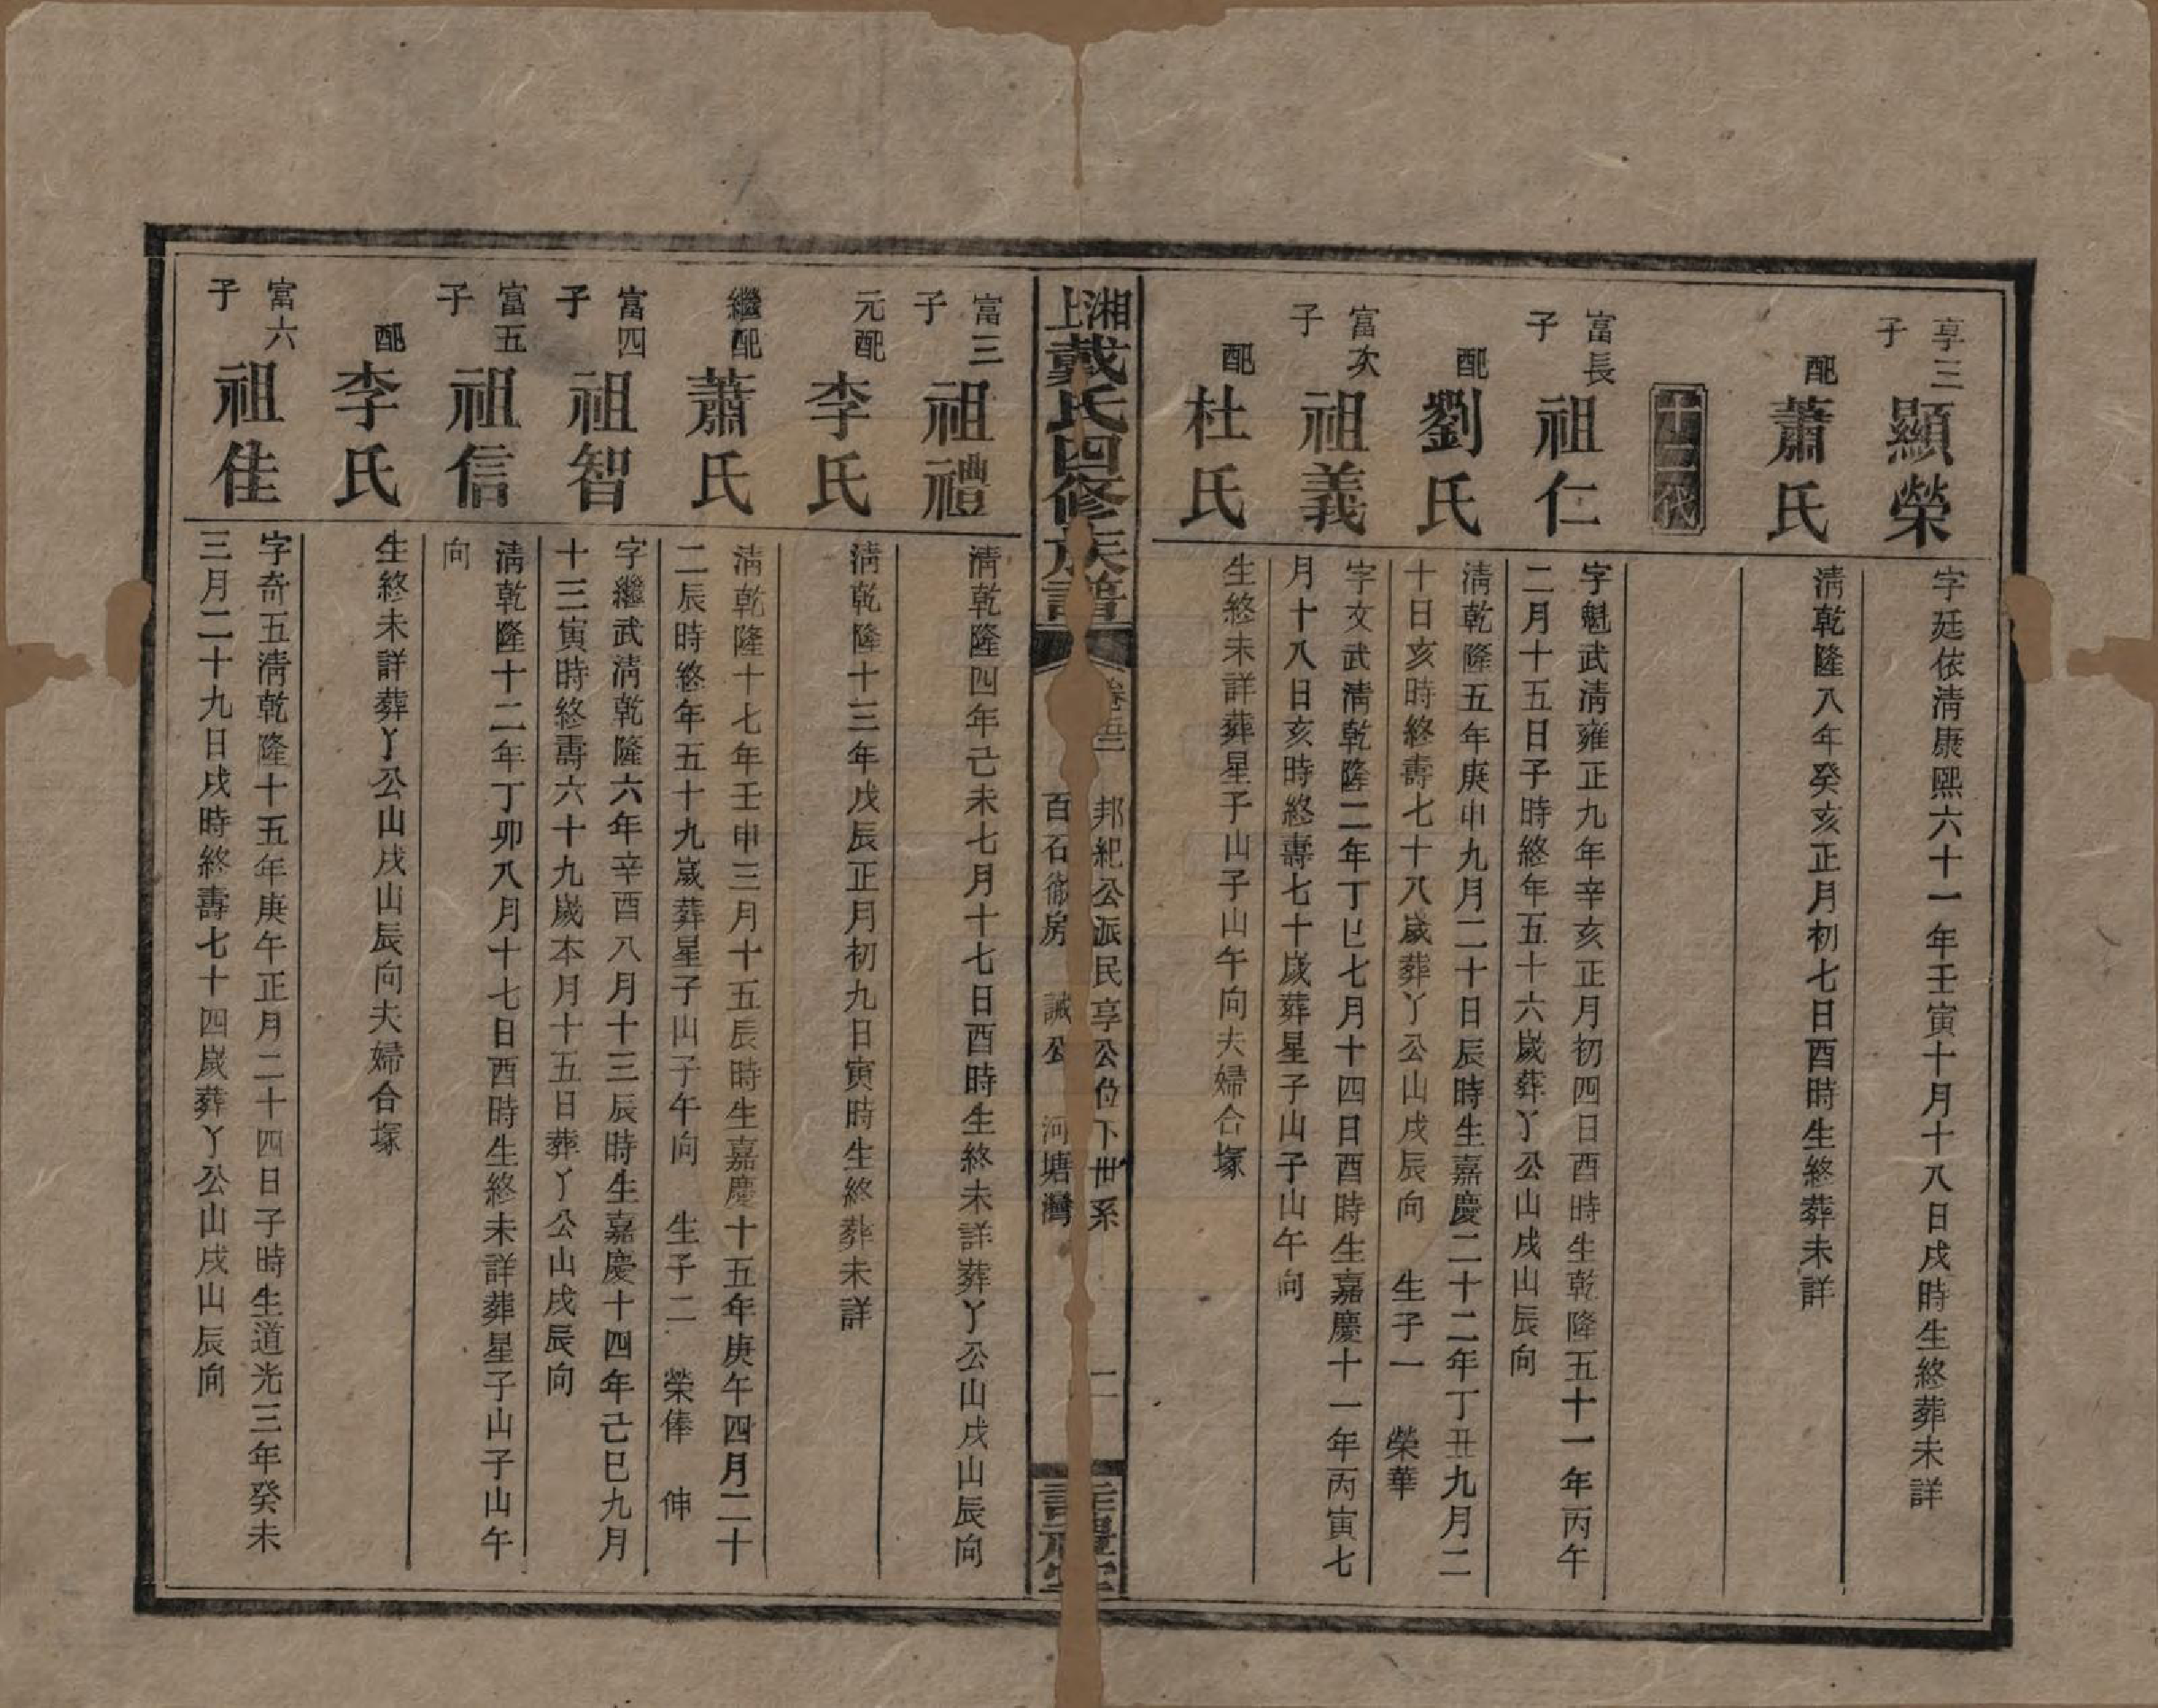 享三子
顯榮
字廷依淸康熙六十一年壬寅十月十八日戌時生終葬未詳
配
蕭氏
淸乾隆八年癸亥正月初七日酉時生終葬未詳
十二代
富長子
祖仁
字魁武淸雍正九年辛亥正月初四日酉時生乾隆五十一年丙午
二月十五日子時終年五十六歲葬丫公山戌山辰向
配
劉氏
淸乾隆五年庚申九月二十日辰時生嘉慶二十二年丁丑九月二
十日亥時終壽七十八歲葬丫公山戌辰向 生子一 榮華
富次子
祖義
字文武淸乾隆二年丁巳七月十四日酉時生嘉慶十一年丙寅七
月十八日亥時終壽七十歲葬星子山子山午向
配
杜氏
生終未詳葬星子山子山午向夫婦合塚
湘上戴氏四修族譜
邦紀公派民享公位下世系
百石衛房 誠公 河塘灣
二
富三子
祖禮
淸乾隆四年己未七月十七日酉時生終未詳葬丫公山戌山辰向
元配
李氏
淸乾隆十三年戊辰正月初九日寅時生終葬未詳
繼配
蕭氏
淸乾隆十七年壬申三月十五辰時生嘉慶十五年庚午四月二十
二辰時終年五十九歲葬星子山子午向 生子二 榮俸 伸
富四子
祖智
字繼武淸乾隆六年辛酉八月十三辰時生嘉慶十四年己巳九月
十三寅時終壽六十九歲本月十五日葬丫公山戌辰向
富五子
祖信
淸乾隆十二年丁卯八月十七日酉時生終未詳葬星子山子山午
向
配
李氏
生終未詳葬丫公山戌山辰向夫婦合塚
富六子
祖佳
字奇五淸乾隆十五年庚午正月二十四日子時生道光三年癸未
三月二十九日戌時終壽七十四歲葬丫公山戌山辰向